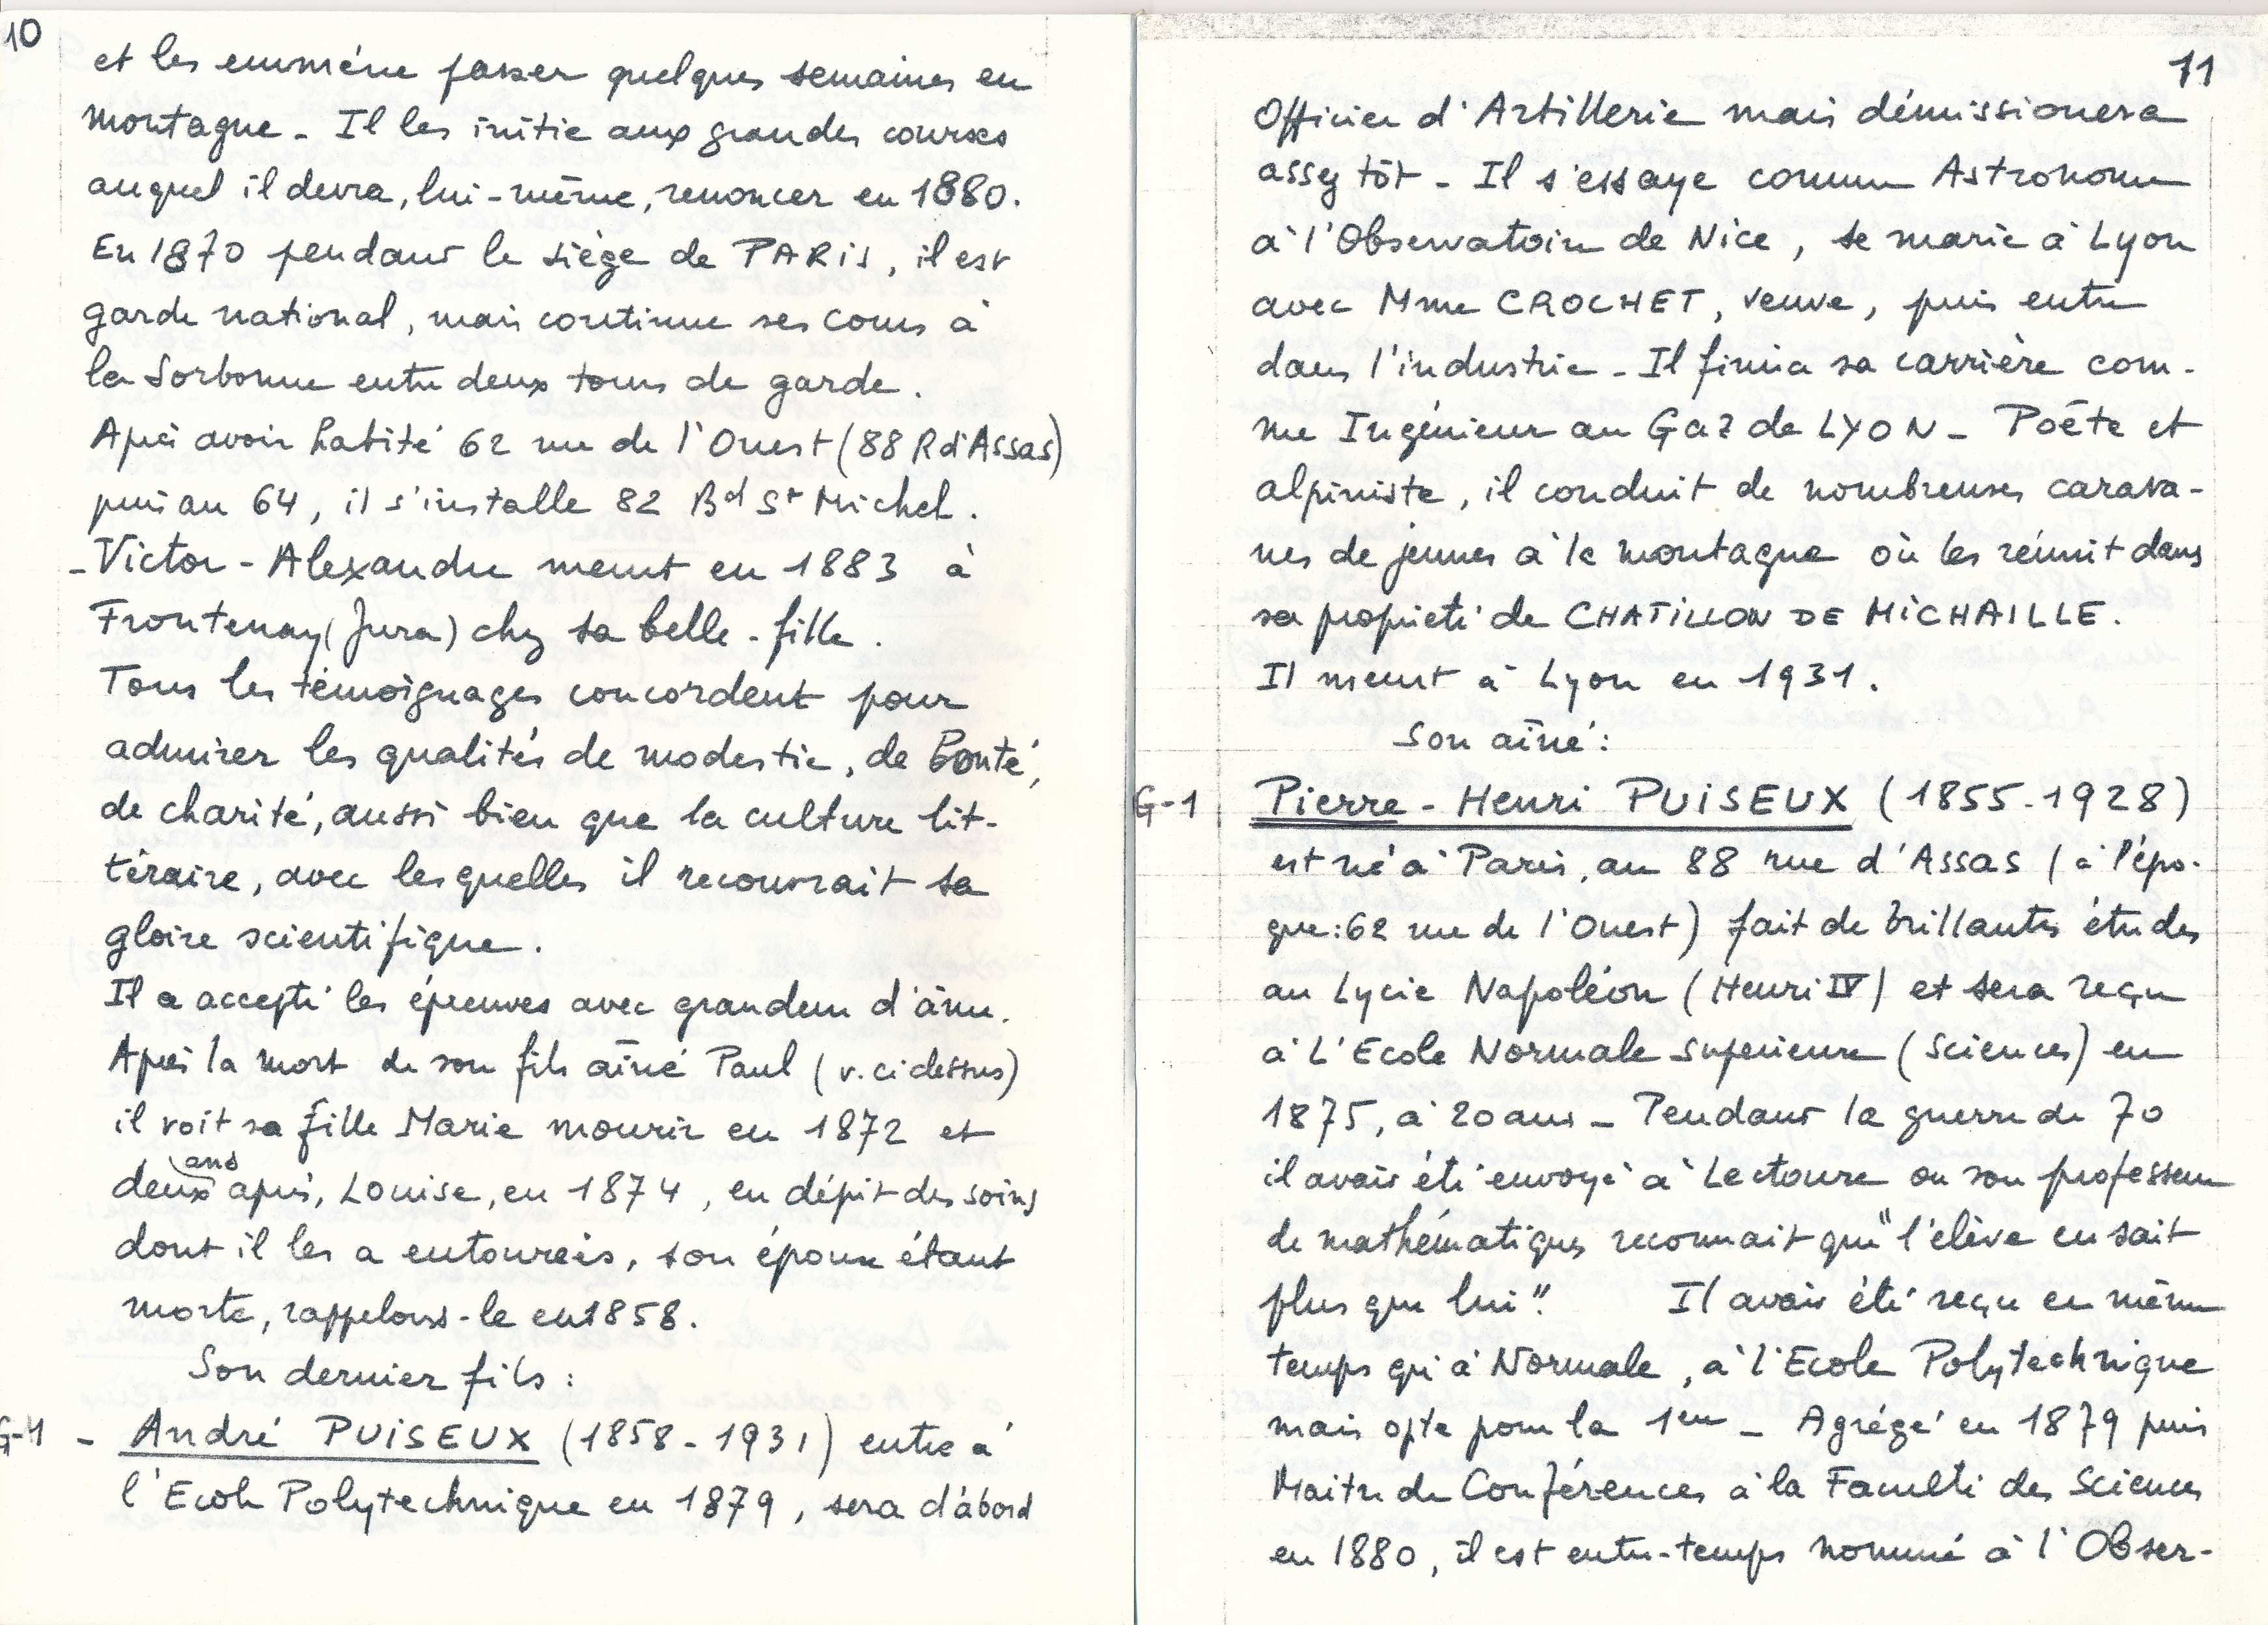 10
et les emmène passer quelques semaines en
montagne - Il les initie aux grandes courses
auquel il devra, lui-même, renoncer en 1880.
En 1870 pendant le siège de PARIS, il est
garde national, mais continue ses cours à
la Sorbonne entre deux tours de garde.
Après avoir habité 62 rue de l'Ouest (88 R d'Assas)
puis au 64, il s'installe 82 Bd St Michel.
- Victor - Alexandre meurt en 1883 à
Frontenay (Jura) chez sa belle-fille.
Tous les témoignages concordent pour
admirer les qualités de modestie, de Bonté,
de charité, aussi bien que la culture lit-
téraire, avec lesquelles il recouvrait sa
gloire scientifique.
Il a accepté les épreuves avec grandeur d'âme.
Après la mort de son fils aîné Paul (v. ci dessus)
il voit sa fille Marie mourir en 1872 et
deux ans après, Louise, en 1874, en dépit des soins
dont il les a entourées, son épouse étant
morte, rappelons-le en 1858.
Son dernier fils :
G-4 - André PUISEUX (1858-1931) entre à
l'Ecole Polytechnique en 1879, sera d'abord
11
Officier d'Artillerie mais démissionera
assez tôt - Il s'essaye comme Astronome
à l'Observatoire de Nice, se marie à Lyon
avec Mme CROCHET, veuve, puis entre
dans l'industrie - Il finira sa carrière com-
me Ingénieur au Gaz de LYON - Poëte et
alpiniste, il conduit de nombreuses carava-
nes de jeunes à la montagne où les réunit dans
sa propriété de CHATILLON DE MICHAILLE.
Il meurt à Lyon en 1931.
Son aîné :
G-1 Pierre - Henri PUISEUX (1855-1928)
est né à Paris, au 88 rue d'Assas (à l'épo-
que : 62 rue de l'Ouest) fait de brillantes études
au Lycée Napoléon (Henri IV) et sera reçu
à L'Ecole Normale superieure (Sciences) en
1875, à 20 ans - Pendant la guerre de 70
il avait été envoyé à Lectoure ou son professeur
de mathématiques reconnait que "l'élève en sait
plus que lui". Il avait été reçu en même
temps qu'à Normale, à l'Ecole Polytechnique
mais opte pour la 1ere - Agrégé en 1879 puis
Maitre de Conférences à la Faculté des Sciences
en 1880, il est entre-temps nommé à l'Obser-